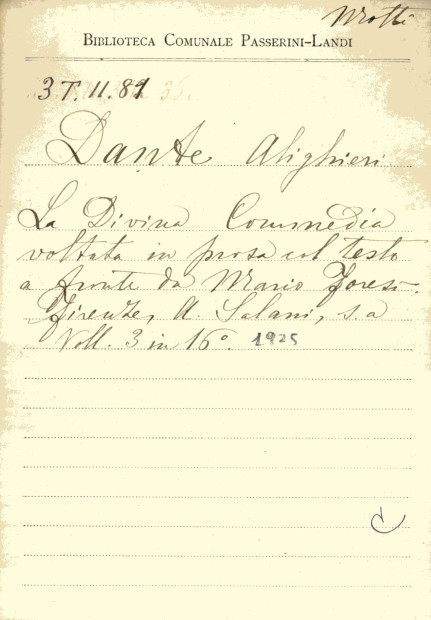 Motti
BIBLIOTECA COMUNALE PASSERINI-LANDI
3 T. II. 89
Dante Alighieri
La Divina Commedia
voltata in prosa col testo
a fronte da Mario Foresi.
Firenze, A. Salani, s.a
Voll. 3 in 16°. 1925
C